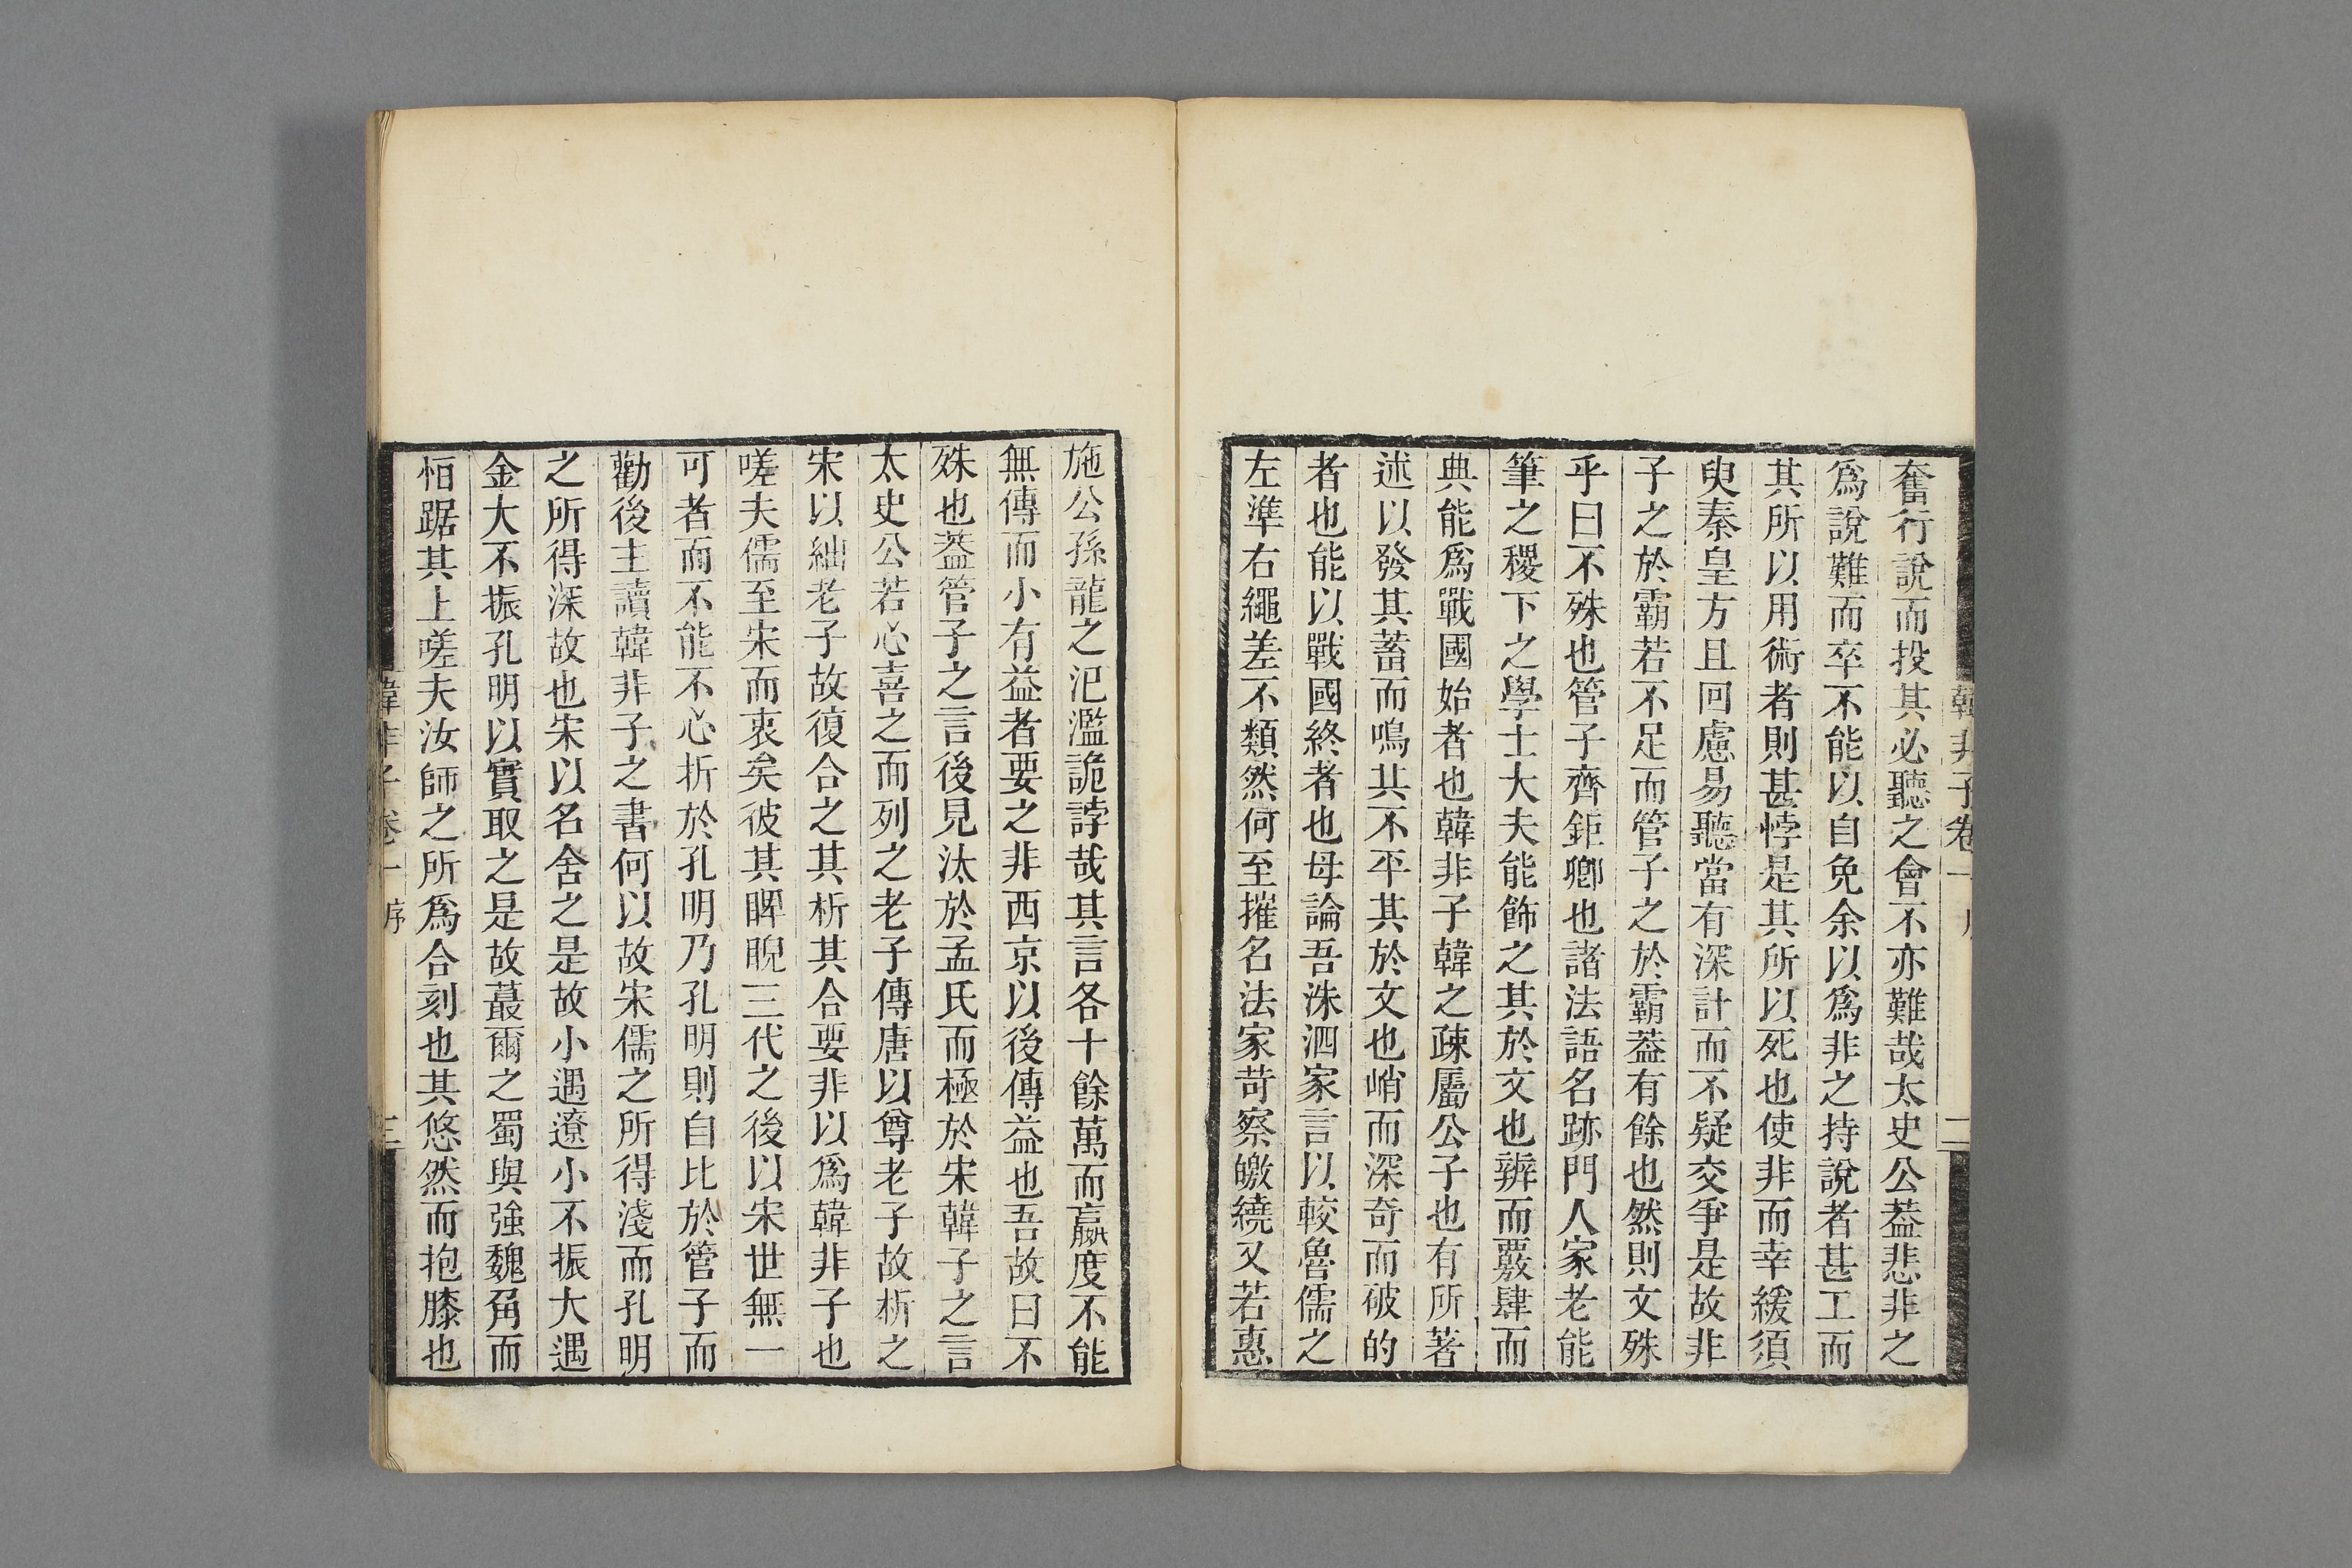 韓非子卷一 二
奮行說而投其必聽之會不亦難哉太史公葢悲非之
爲說難而卒不能以自免余以爲非之持說者甚工而
其所以用術者則甚悖是其所以死也使非而幸緩須
臾秦皇方且回慮易聽當有深計而不疑交爭是故非
子之於霸若不足而管子之於霸葢有餘也然則文殊
乎曰不殊也管子齊鉅卿也諸法語名跡門人家老能
筆之稷下之學士大夫能飾之其於文也辨而覈肆而
典能爲戰國始者也韓非子韓之疎屬公子也有所著
述以發其蓄而鳴其不平其於文也峭而深奇而破的
者也能以戰國終者也毋論吾洙泗家言以較魯儒之
左準右繩差不類然何至摧名法家苛察繳繞又若惠
施公孫龍之汜濫詭誖哉其言各十餘萬而嬴度不能
無傳而小有益者要之非西京以後傳益也吾故曰不
殊也葢管子之言後見汰於孟氏而極於宋韓子之言
太史公若心喜之而列之老子傳唐以尊老子故析之
宋以絀老子故復合之其析其合要非以爲韓非子也
嗟夫儒至宋而衷矣彼其睥睨三代之後以宋世無一
可者而不能不心折於孔明乃孔明則自比於管子而
勸後主讀韓非子之書何以故宋儒之所得淺而孔明
之所得深故也宋以名舍之是故小遇遼小不振大遇
金大不振孔明以實取之是故蕞爾之蜀與強魏角而
恒踞其上嗟夫汝師之所爲合刻也其悠然而抱膝也
韓非子卷一 序 三